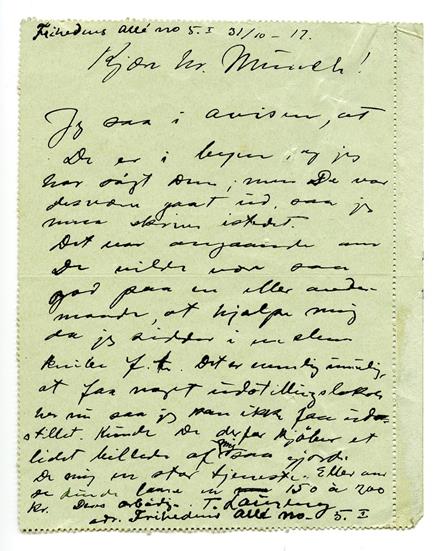 Frihedens Allé no 5. I 31/10 – 17.
Kjære Hr. Munch!
Jeg saa i avisen, at
De er i byen, og jeg
har søgt Dem; men De var
desværre gaat ud, saa jeg
maa skrive istedet.
Det var angaaende om
De vilde være saa
god paa en eller anden
maade, at hjælpe mig
da jeg sidder i en slem
knibe f. t. Det er umulig
at faa noget udstillingslokale
her nu saa jeg kan ikke faa ud-
stillet. Kunde De derfor kjøbe et
lidet billede af mig saa gjorde
De mig en stor tjeneste. Eller om
De kunde laane en 150 à 200
kr. Deres ærbødige
adr. Frihedens Allé no 5. I